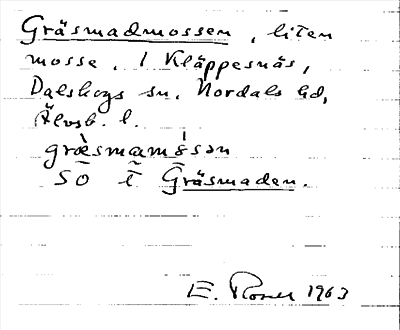 Gräsmadmossen, liten
mosse, i Kläppesnäs,
Dalskogs sn. Nordals hd,
Älvsb. l.
græ̀smamǻssən
SÖ i Gräsmaden.
E. Rosell 1963